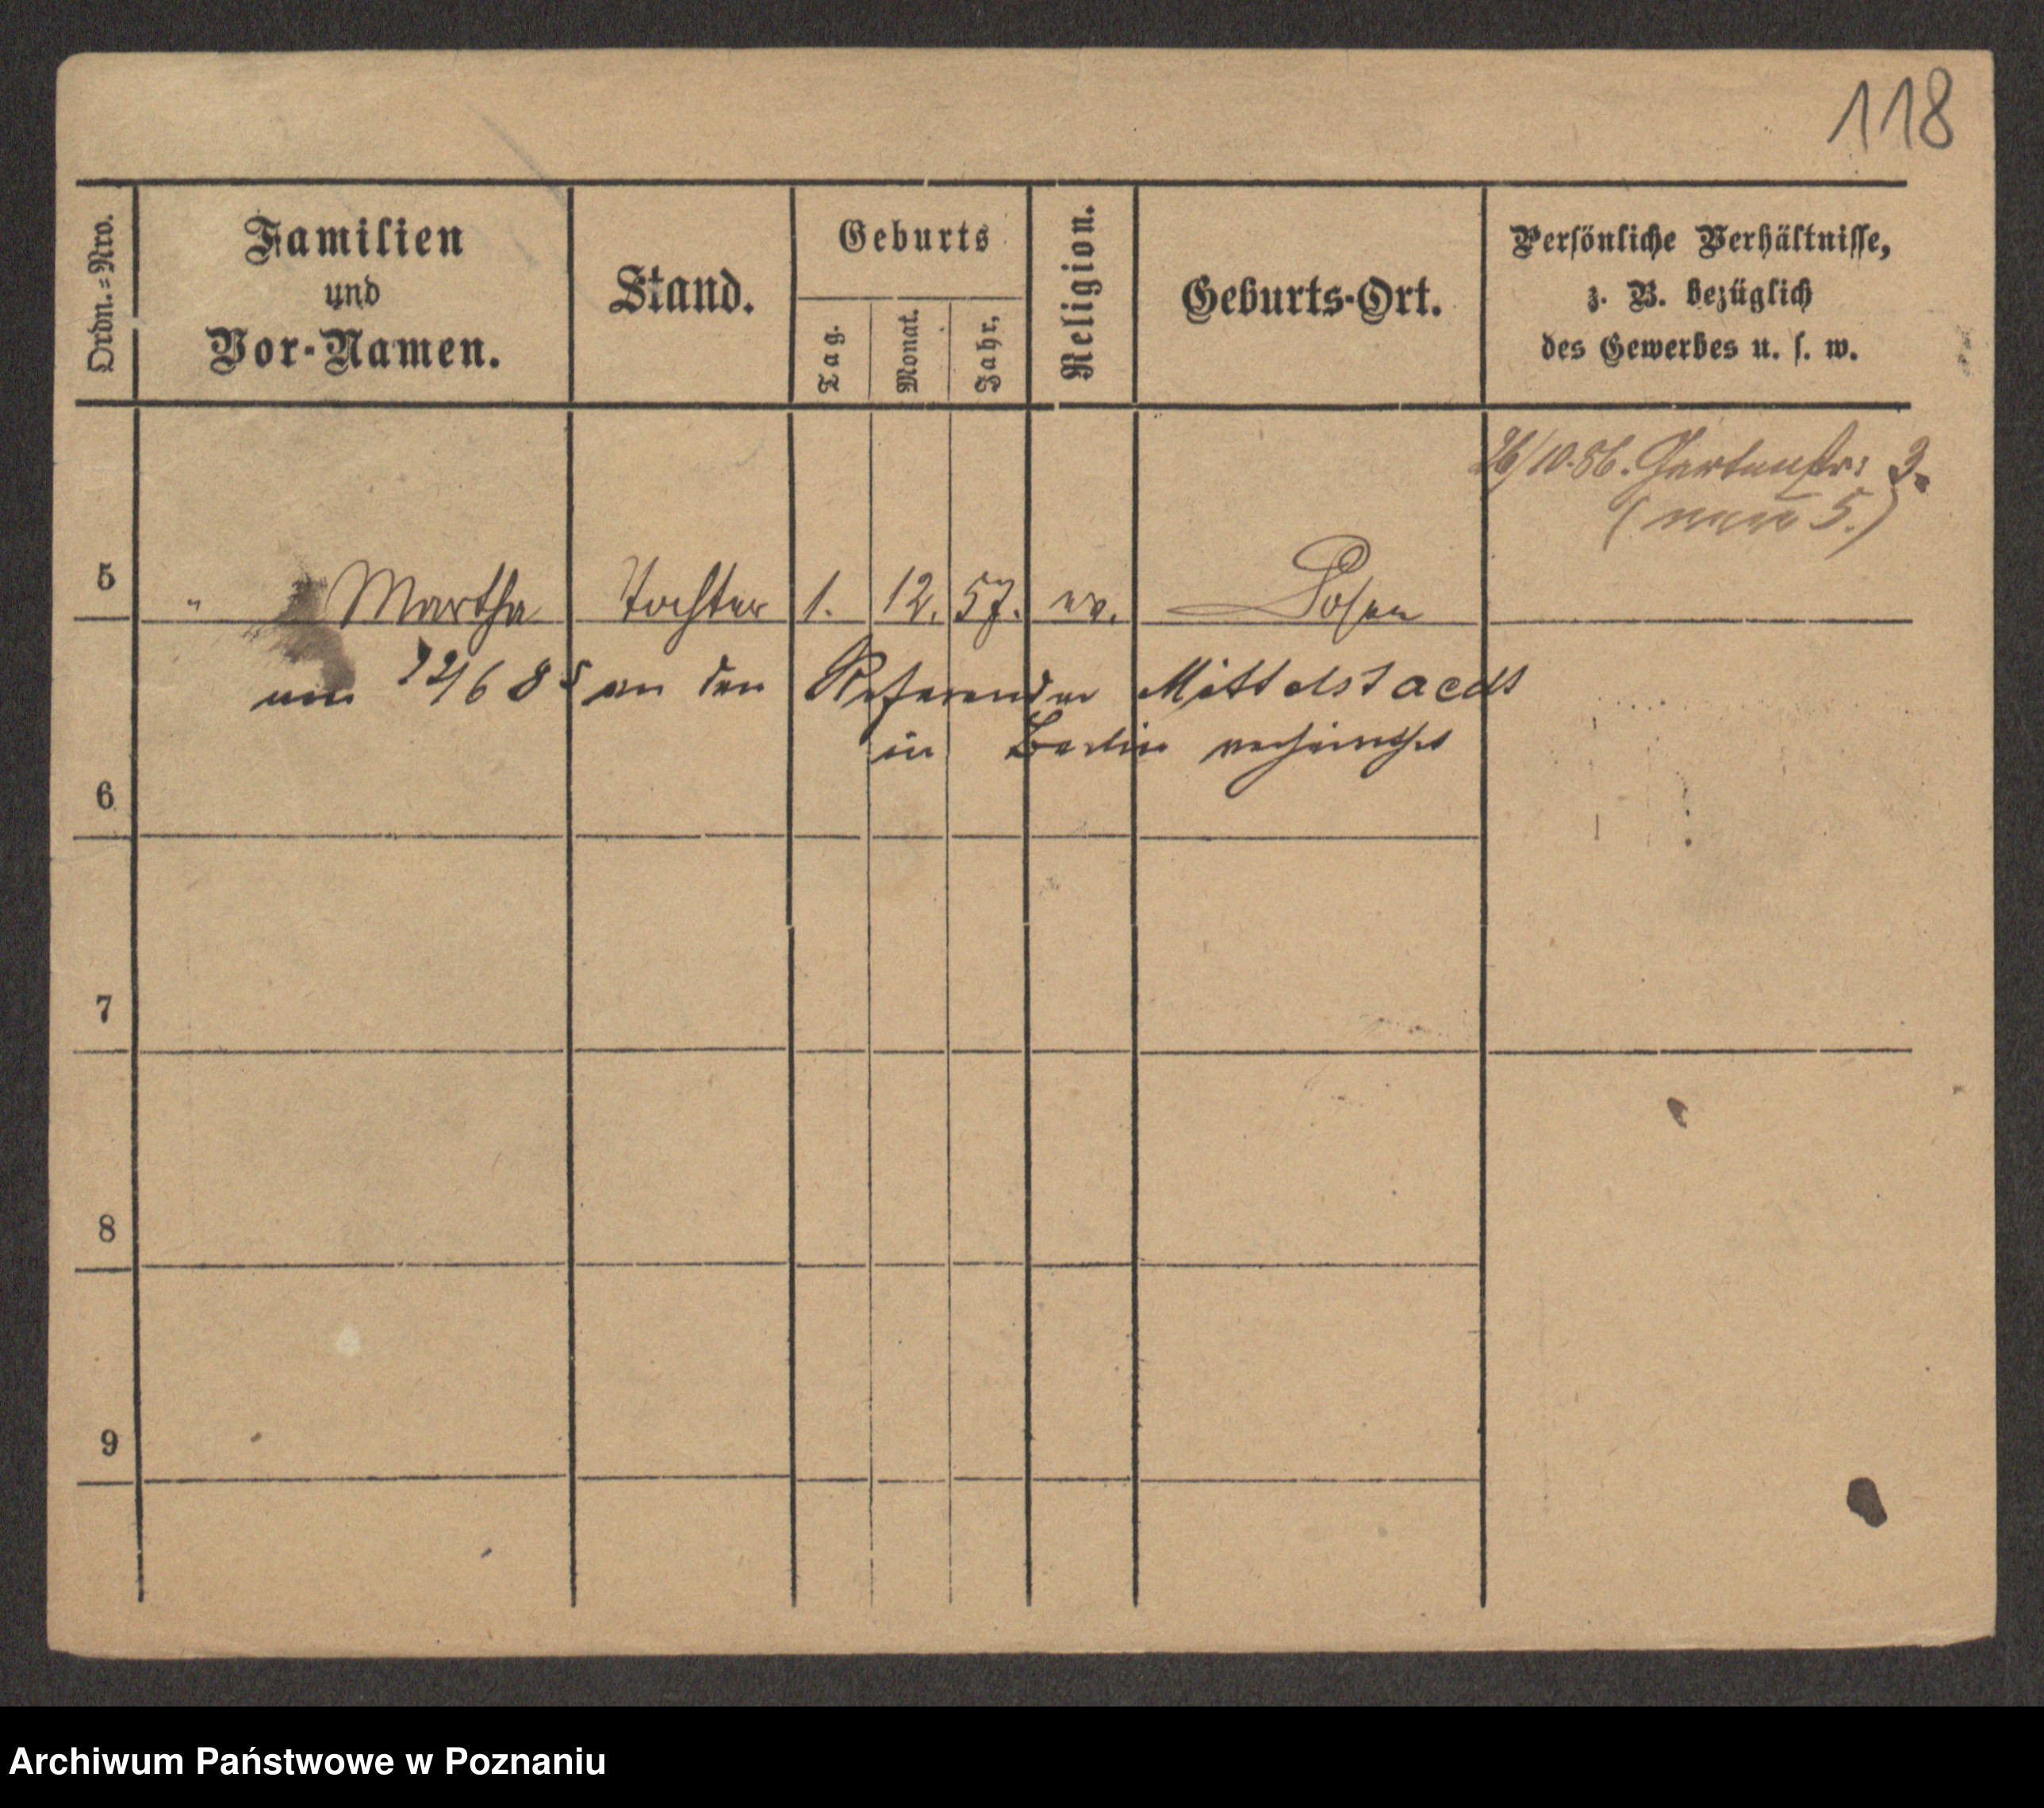 118
Ordn.=Nro.
Familien
und
Vor-Namen.
Stand.
Geburts
Tag.
Monat.
Jahr.
Religion.
Geburts-Ort.
Persönliche Verhältnisse,
z. B. bezüglich
des Gewerbes u. s. w.
26/10.86. Gartenstr: 3.
(neue 5.)
5 " Martha Tochter 1. 12. 57. ev. Posen
am /6 8 an den Referendar Mittelstaedt
in Berlin verheirathet
6
7
8
9
Archiwum Państwowe w Poznaniu